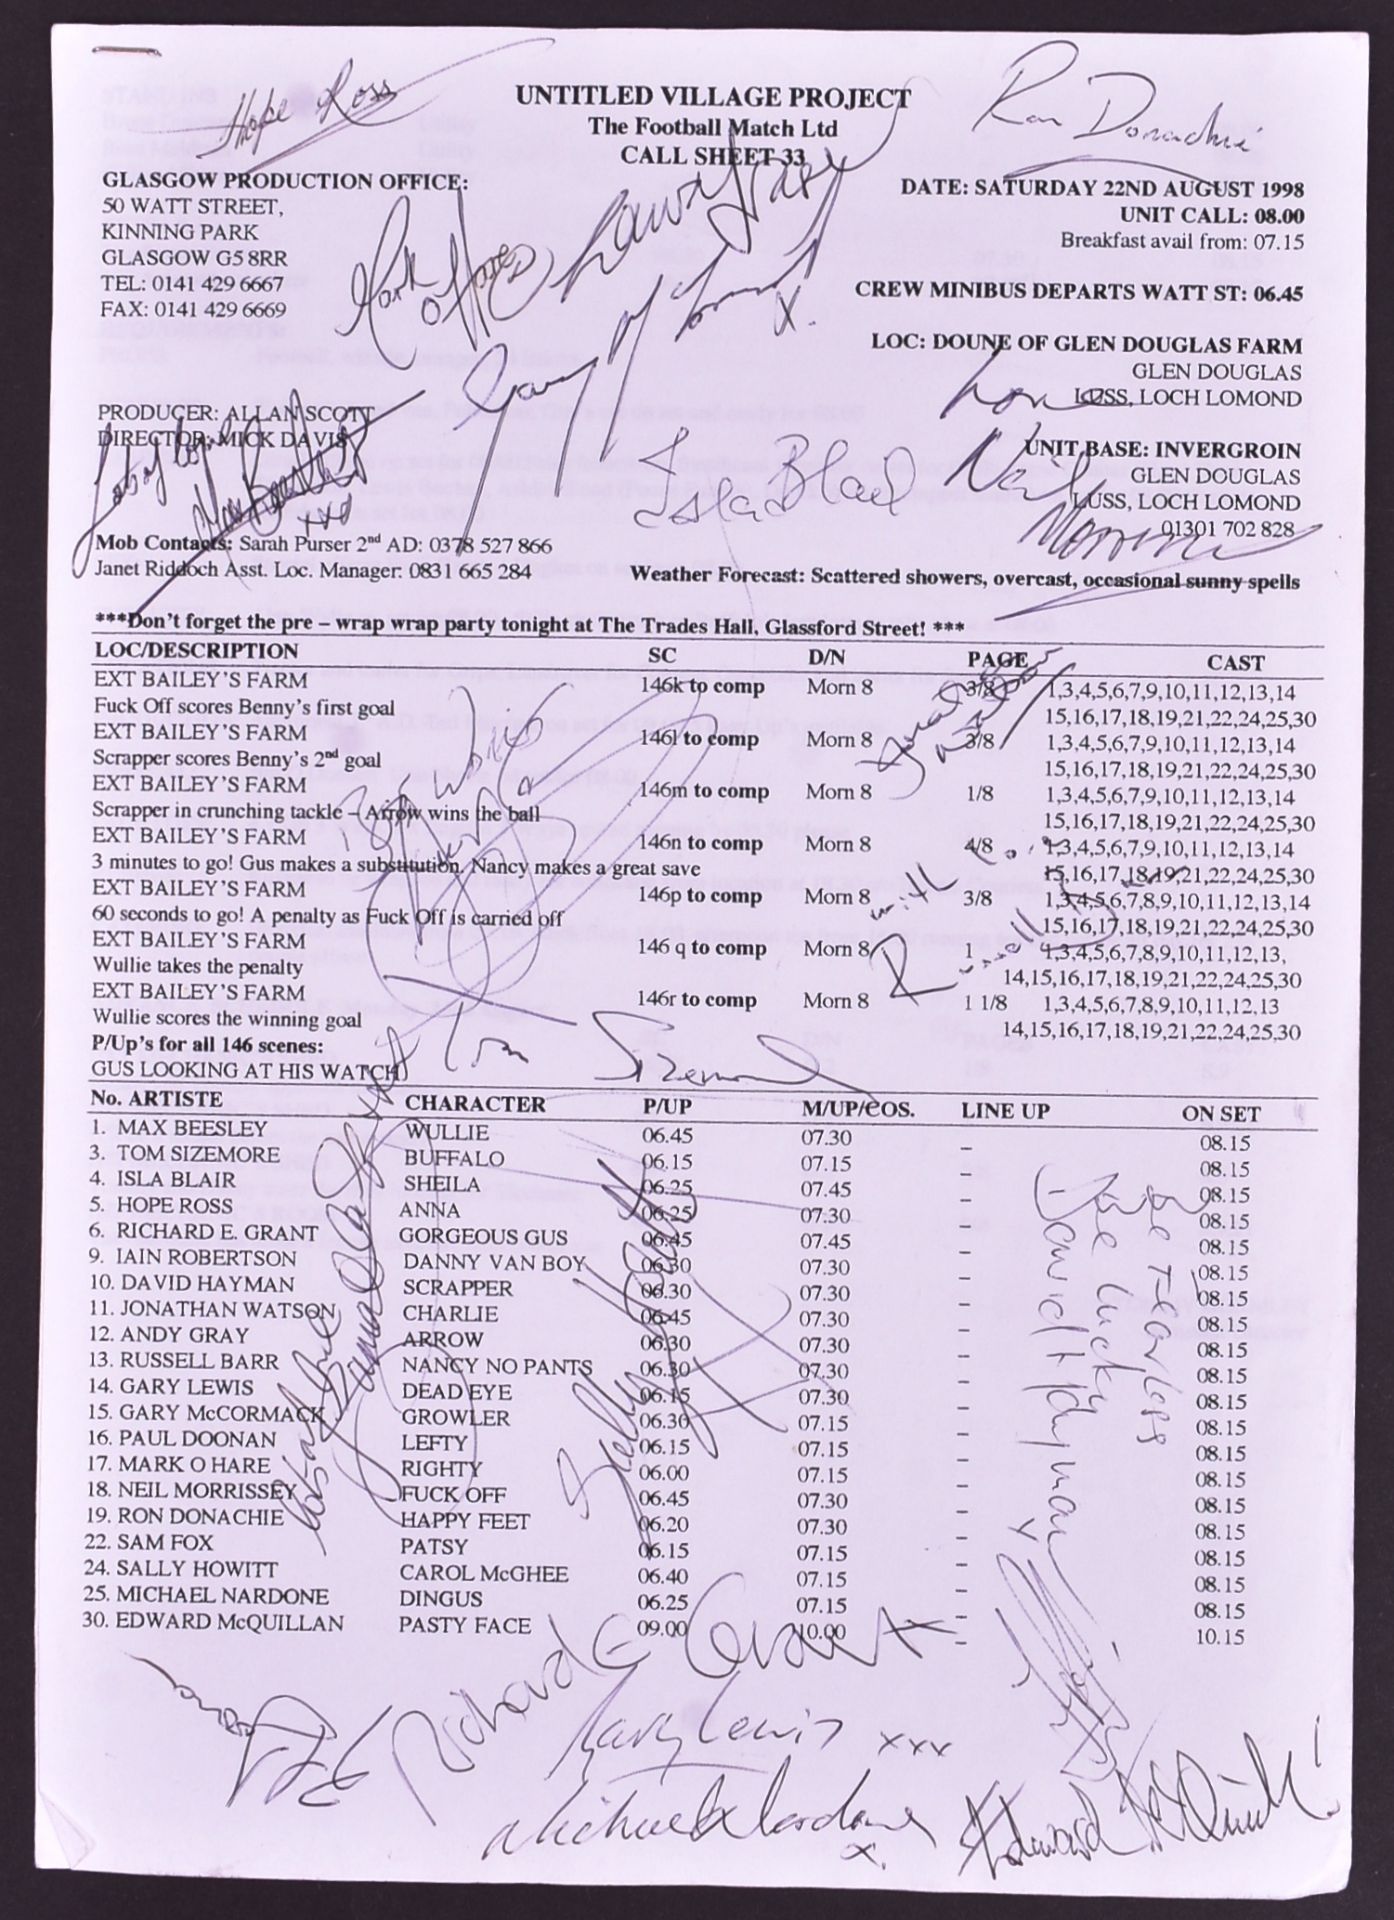 Hope Ross
UNTITLED VILLAGE PROJECT
The Football Match Ltd
CALL SHEET 33
Ron Donachie
GLASGOW PRODUCTION OFFICE:
50 WATT STREET,
KINNING PARK
GLASGOW G5 8RR
TEL: 0141 429 6667
FAX: 0141 429 6669
DATE: SATURDAY 22ND AUGUST 1998
UNIT CALL: 08.00
Breakfast avail from: 07.15
CREW MINIBUS DEPARTS WATT ST: 06.45
LOC: DOUNE OF GLEN DOUGLAS FARM
GLEN DOUGLAS
LUSS, LOCH LOMOND
Mark O'Hare
PRODUCER: ALLAN SCOTT
DIRECTOR: MICK DAVIS
Isla Blair
UNIT BASE: INVERGROIN
GLEN DOUGLAS
LUSS, LOCH LOMOND
01301 702 828
Love Neil Morrissey
Mob Contacts: Sarah Purser 2nd AD: 0378 527 866
Janet Riddoch Asst. Loc. Manager: 0831 665 284
Weather Forecast: Scattered showers, overcast, occasional sunny spells
***Don't forget the pre – wrap wrap party tonight at The Trades Hall, Glassford Street! ***
LOC/DESCRIPTION SC D/N PAGE CAST
EXT BAILEY'S FARM 146k to comp Morn 8 3/8 1,3,4,5,6,7,9,10,11,12,13,14
Fuck Off scores Benny's first goal 15,16,17,18,19,21,22,24,25,30
EXT BAILEY'S FARM 146l to comp Morn 8 3/8 1,3,4,5,6,7,9,10,11,12,13,14
Scrapper scores Benny's 2nd goal 15,16,17,18,19,21,22,24,25,30
EXT BAILEY'S FARM 146m to comp Morn 8 1/8 1,3,4,5,6,7,9,10,11,12,13,14
Scrapper in crunching tackle – Arrow wins the ball 15,16,17,18,19,21,22,24,25,30
EXT BAILEY'S FARM 146n to comp Morn 8 4/8 1,3,4,5,6,7,9,10,11,12,13,14
3 minutes to go! Gus makes a substitution. Nancy makes a great save 15,16,17,18,19,21,22,24,25,30
EXT BAILEY'S FARM 146p to comp Morn 8 3/8 1,3,4,5,6,7,8,9,10,11,12,13,14
60 seconds to go! A penalty as Fuck Off is carried off 15,16,17,18,19,21,22,24,25,30
EXT BAILEY'S FARM 146 q to comp Morn 8 1 1,3,4,5,6,7,8,9,10,11,12,13,
Wullie takes the penalty 14,15,16,17,18,19,21,22,24,25,30
EXT BAILEY'S FARM 146r to comp Morn 8 1 1/8 1,3,4,5,6,7,8,9,10,11,12,13
Wullie scores the winning goal 14,15,16,17,18,19,21,22,24,25,30
P/Up's for all 146 scenes:
GUS LOOKING AT HIS WATCH
Tom Sizemore
No. ARTISTE CHARACTER P/UP M/UP/COS. LINE UP ON SET
1. MAX BEESLEY WULLIE 06.45 07.30 – 08.15
3. TOM SIZEMORE BUFFALO 06.15 07.15 – 08.15
4. ISLA BLAIR SHEILA 06.25 07.45 – 08.15
5. HOPE ROSS ANNA 06.25 07.30 – 08.15
6. RICHARD E. GRANT GORGEOUS GUS 06.45 07.45 – 08.15
9. IAIN ROBERTSON DANNY VAN BOY 06.30 07.30 – 08.15
10. DAVID HAYMAN SCRAPPER 06.30 07.30 – 08.15
11. JONATHAN WATSON CHARLIE 06.45 07.30 – 08.15
12. ANDY GRAY ARROW 06.30 07.30 – 08.15
13. RUSSELL BARR NANCY NO PANTS 06.30 07.30 – 08.15
14. GARY LEWIS DEAD EYE 06.15 07.30 – 08.15
15. GARY McCORMACK GROWLER 06.30 07.15 – 08.15
16. PAUL DOONAN LEFTY 06.15 07.15 – 08.15
17. MARK O HARE RIGHTY 06.00 07.15 – 08.15
18. NEIL MORRISSEY FUCK OFF 06.45 07.30 – 08.15
19. RON DONACHIE HAPPY FEET 06.20 07.30 – 08.15
22. SAM FOX PATSY 06.15 07.15 – 08.15
24. SALLY HOWITT CAROL McGHEE 06.40 07.15 – 08.15
25. MICHAEL NARDONE DINGUS 06.25 07.15 – 08.15
30. EDWARD McQUILLAN PASTY FACE 09.00 10.00 – 10.15
Be Fearless
Be Lucky
David Hayman
Richard E Grant
Gary Lewis xxx
Michael Nardone x.
Edward McQuillan!